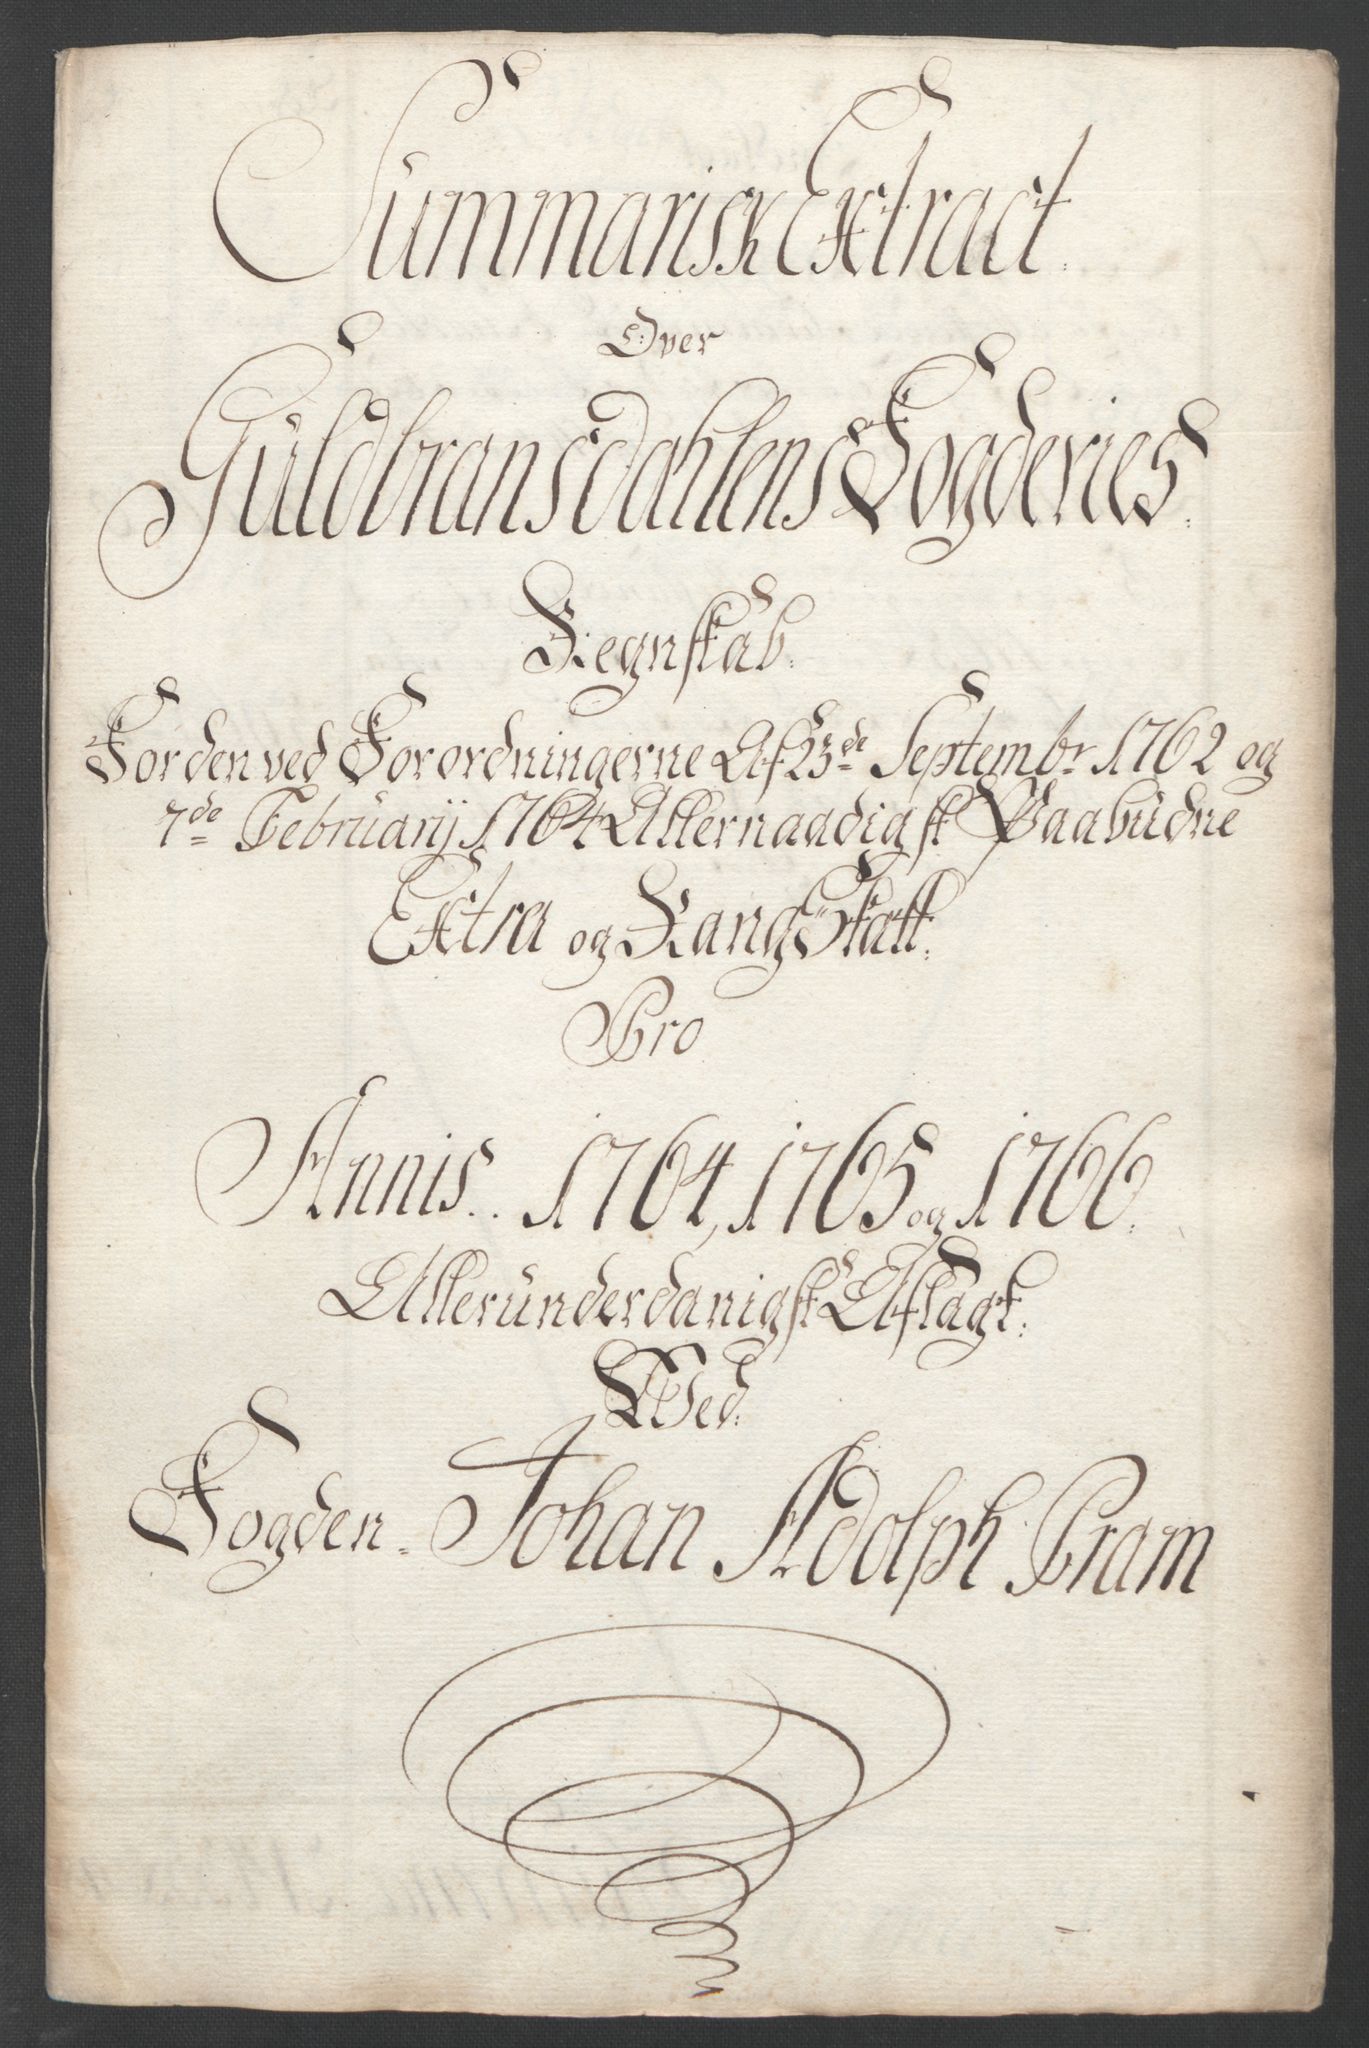 Summarisk Extract.
Over
Guldbransdahlens Fogderies.
Regnskab.
For den ved Forordningerne Af 23de Septembr 1762 og
7de Februarij 1764 Allernaadigst Paabudne
Extra og Rang Skatt.
Pro
Annis.. 1764, 1765 og 1766.
Allerunderdanigst Aflagt.
Wed.
Fogden. Johan Adolph Pram